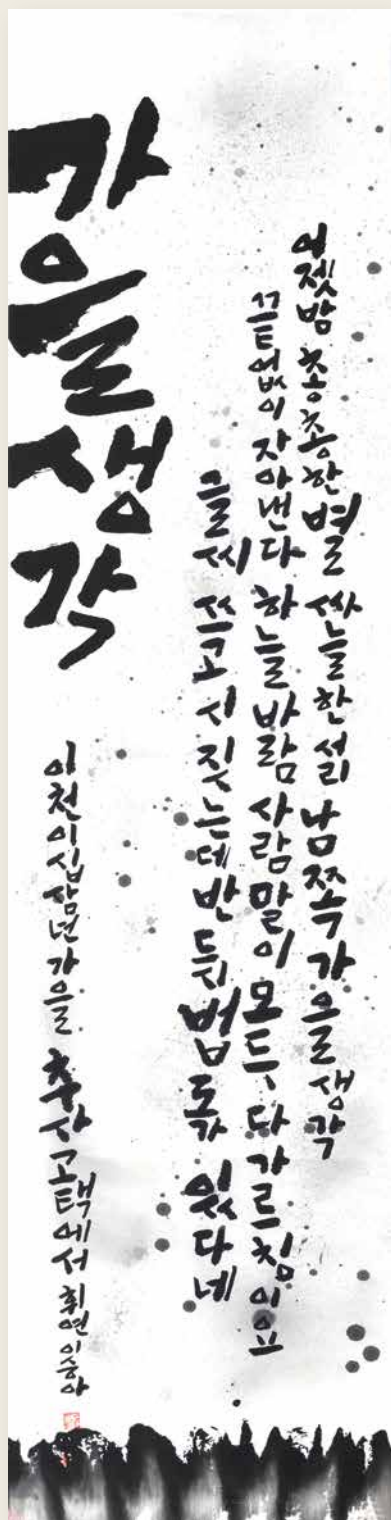 가을생각
어젯밤 총총한 별 싸늘한 서리 남쪽 가을 생각
끝없이 자아낸다 하늘 바람 사람 말이 모두 다 가르침이요
글씨 쓰고 시 짓는데 반드시 법도가 있다네
이천이십삼년 가을 추사고택에서 휘연 이승아